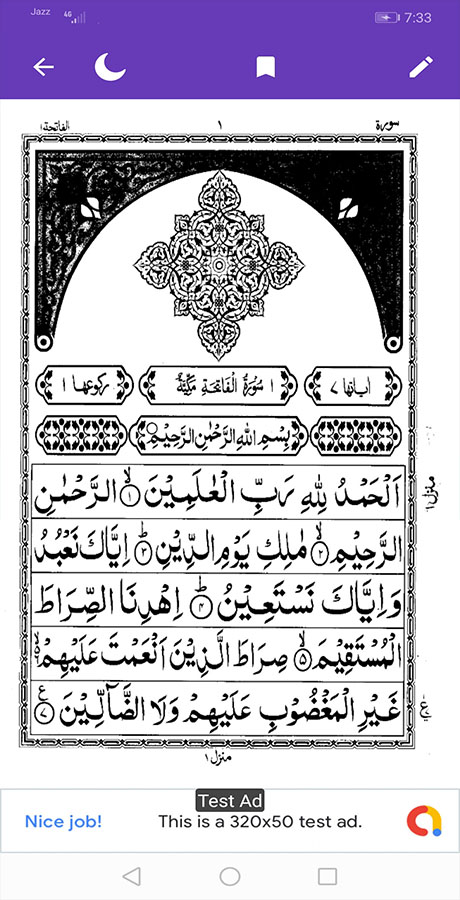 Jazz 4G 7:33
سورة ١ الفاتحة ١
اياتها ٧ ١ سُوْرَةُ الْفَاتِحَةِ مَكِّيَّةٌ ركوعها ١
بِسْمِ اللهِ الرَّحْمٰنِ الرَّحِيْمِ
اَلْحَمْدُ لِلّٰهِ رَبِّ الْعٰلَمِيْنَ ۙ﴿١﴾ الرَّحْمٰنِ
الرَّحِيْمِ ۙ﴿٢﴾ مٰلِكِ يَوْمِ الدِّيْنِ ؕ﴿٣﴾ اِيَّاكَ نَعْبُدُ
وَاِيَّاكَ نَسْتَعِيْنُ ؕ﴿٤﴾ اِهْدِنَا الصِّرَاطَ
الْمُسْتَقِيْمَ ۙ﴿٥﴾ صِرَاطَ الَّذِيْنَ اَنْعَمْتَ عَلَيْهِمْ ۙ
غَيْرِ الْمَغْضُوْبِ عَلَيْهِمْ وَلَا الضَّآلِّيْنَ ﴿٧﴾ ع
منزل ١
منزل ١
Test Ad
Nice job! This is a 320x50 test ad.